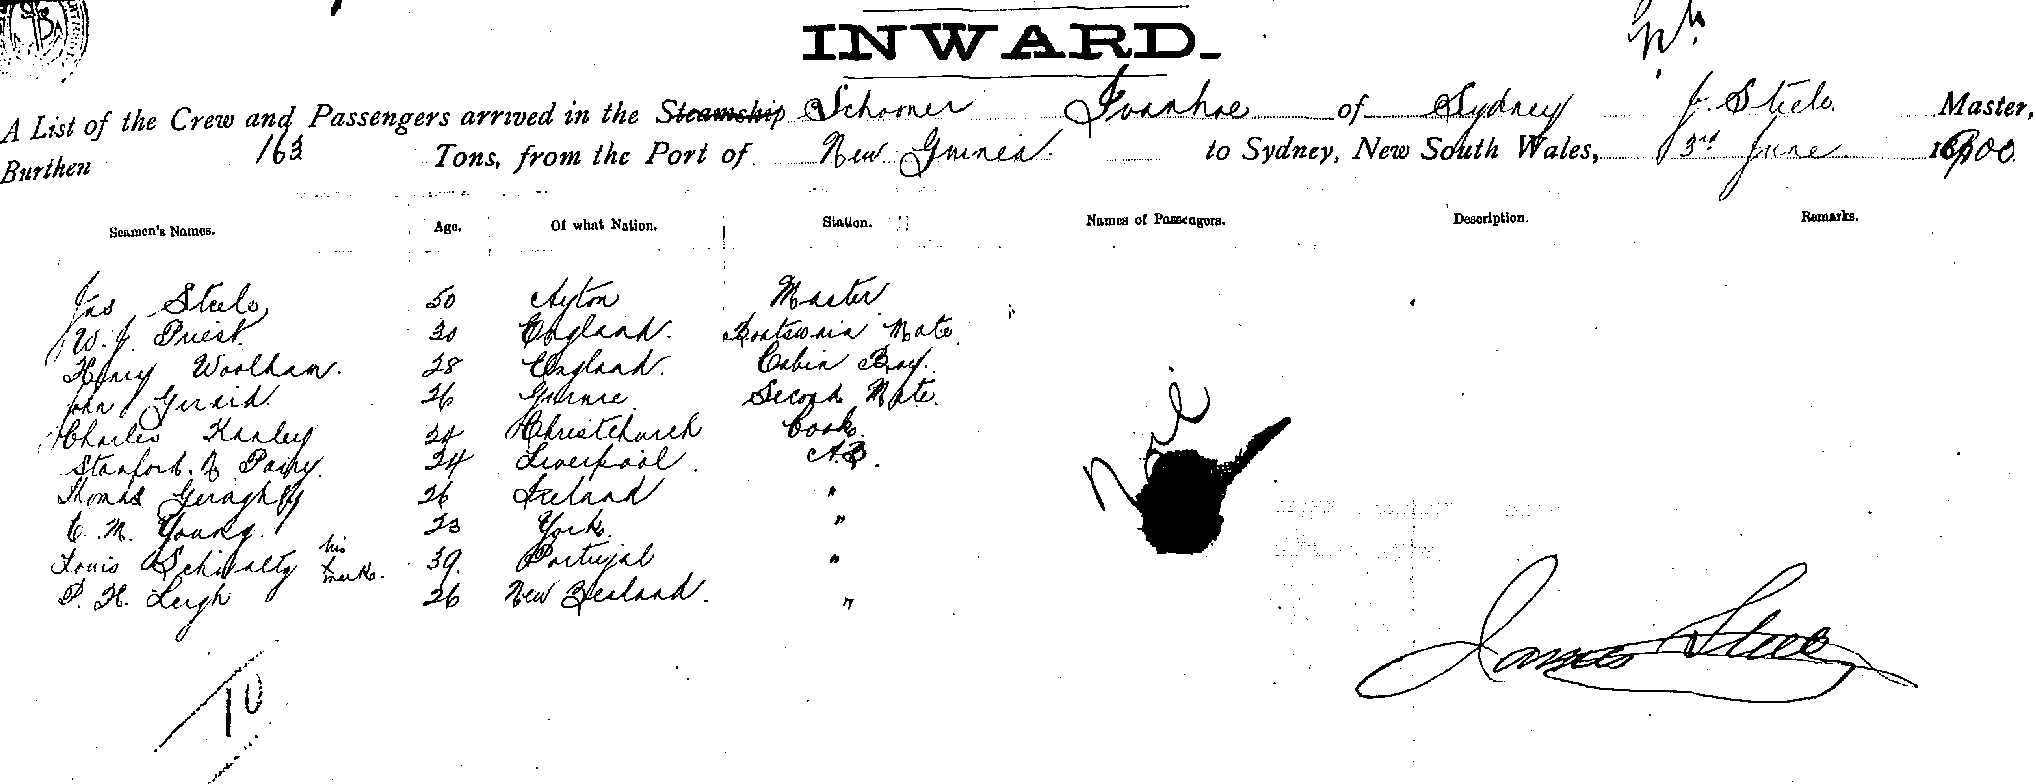 INWARD.
A List of the Crew and Passengers arrived in the Steamship Schooner Ivanhoe of Sydney J. Steele Master,
Burthen 163 Tons, from the Port of New Guinea to Sydney, New South Wales, 3rd June 1900
Seamen's Names. Age. Of what Nation. Station. Names of Passengers. Description. Remarks.
Jas Steele 50 Ayton Master
W. J. Priest 30 England. Boatswain Mate.
Henry Woolham. 28 England. Cabin Boy.
John 26 Second Mate.
Charles Hanley 24 Christchurch Cook.
Stanford. 24 Liverpool. A.B.
Thomas Geraghty 26 Ireland "
C. M. Young. 23 York. "
Louis his x mark. 39. Portugal "
P. H. Leigh 26 New Zealand. "
Nil
James Steele
10